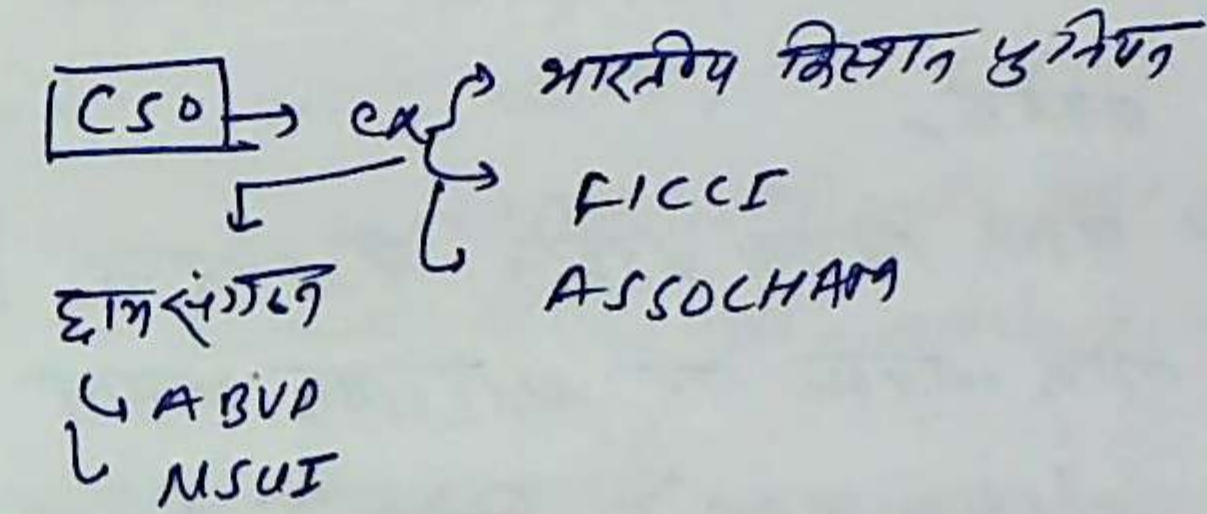 CSO → ex → भारतीय किसान युनियन
→ FICCI
ASSOCHAM
छात्र संगठन
↳ ABVP
↳ NSUI